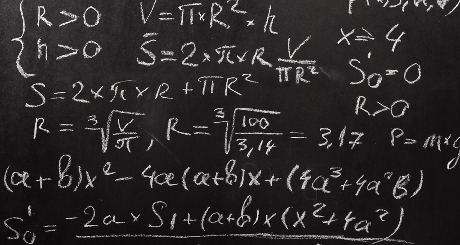 R > 0
h > 0
V = π × R² · h
S̄ = 2 × π × R V/πR²
S = 2 × π × R + πR²
R = ³√(V/π), R = ³√(100/3,14) = 3,17
x = 4
S'₀ = 0
R > 0
P = m × g
(a + b)x² - 4a(a + b)x + (4a³ + 4a²b)
S'₀ = -2a × S₁ + (a + b) × (x² + 4a²)